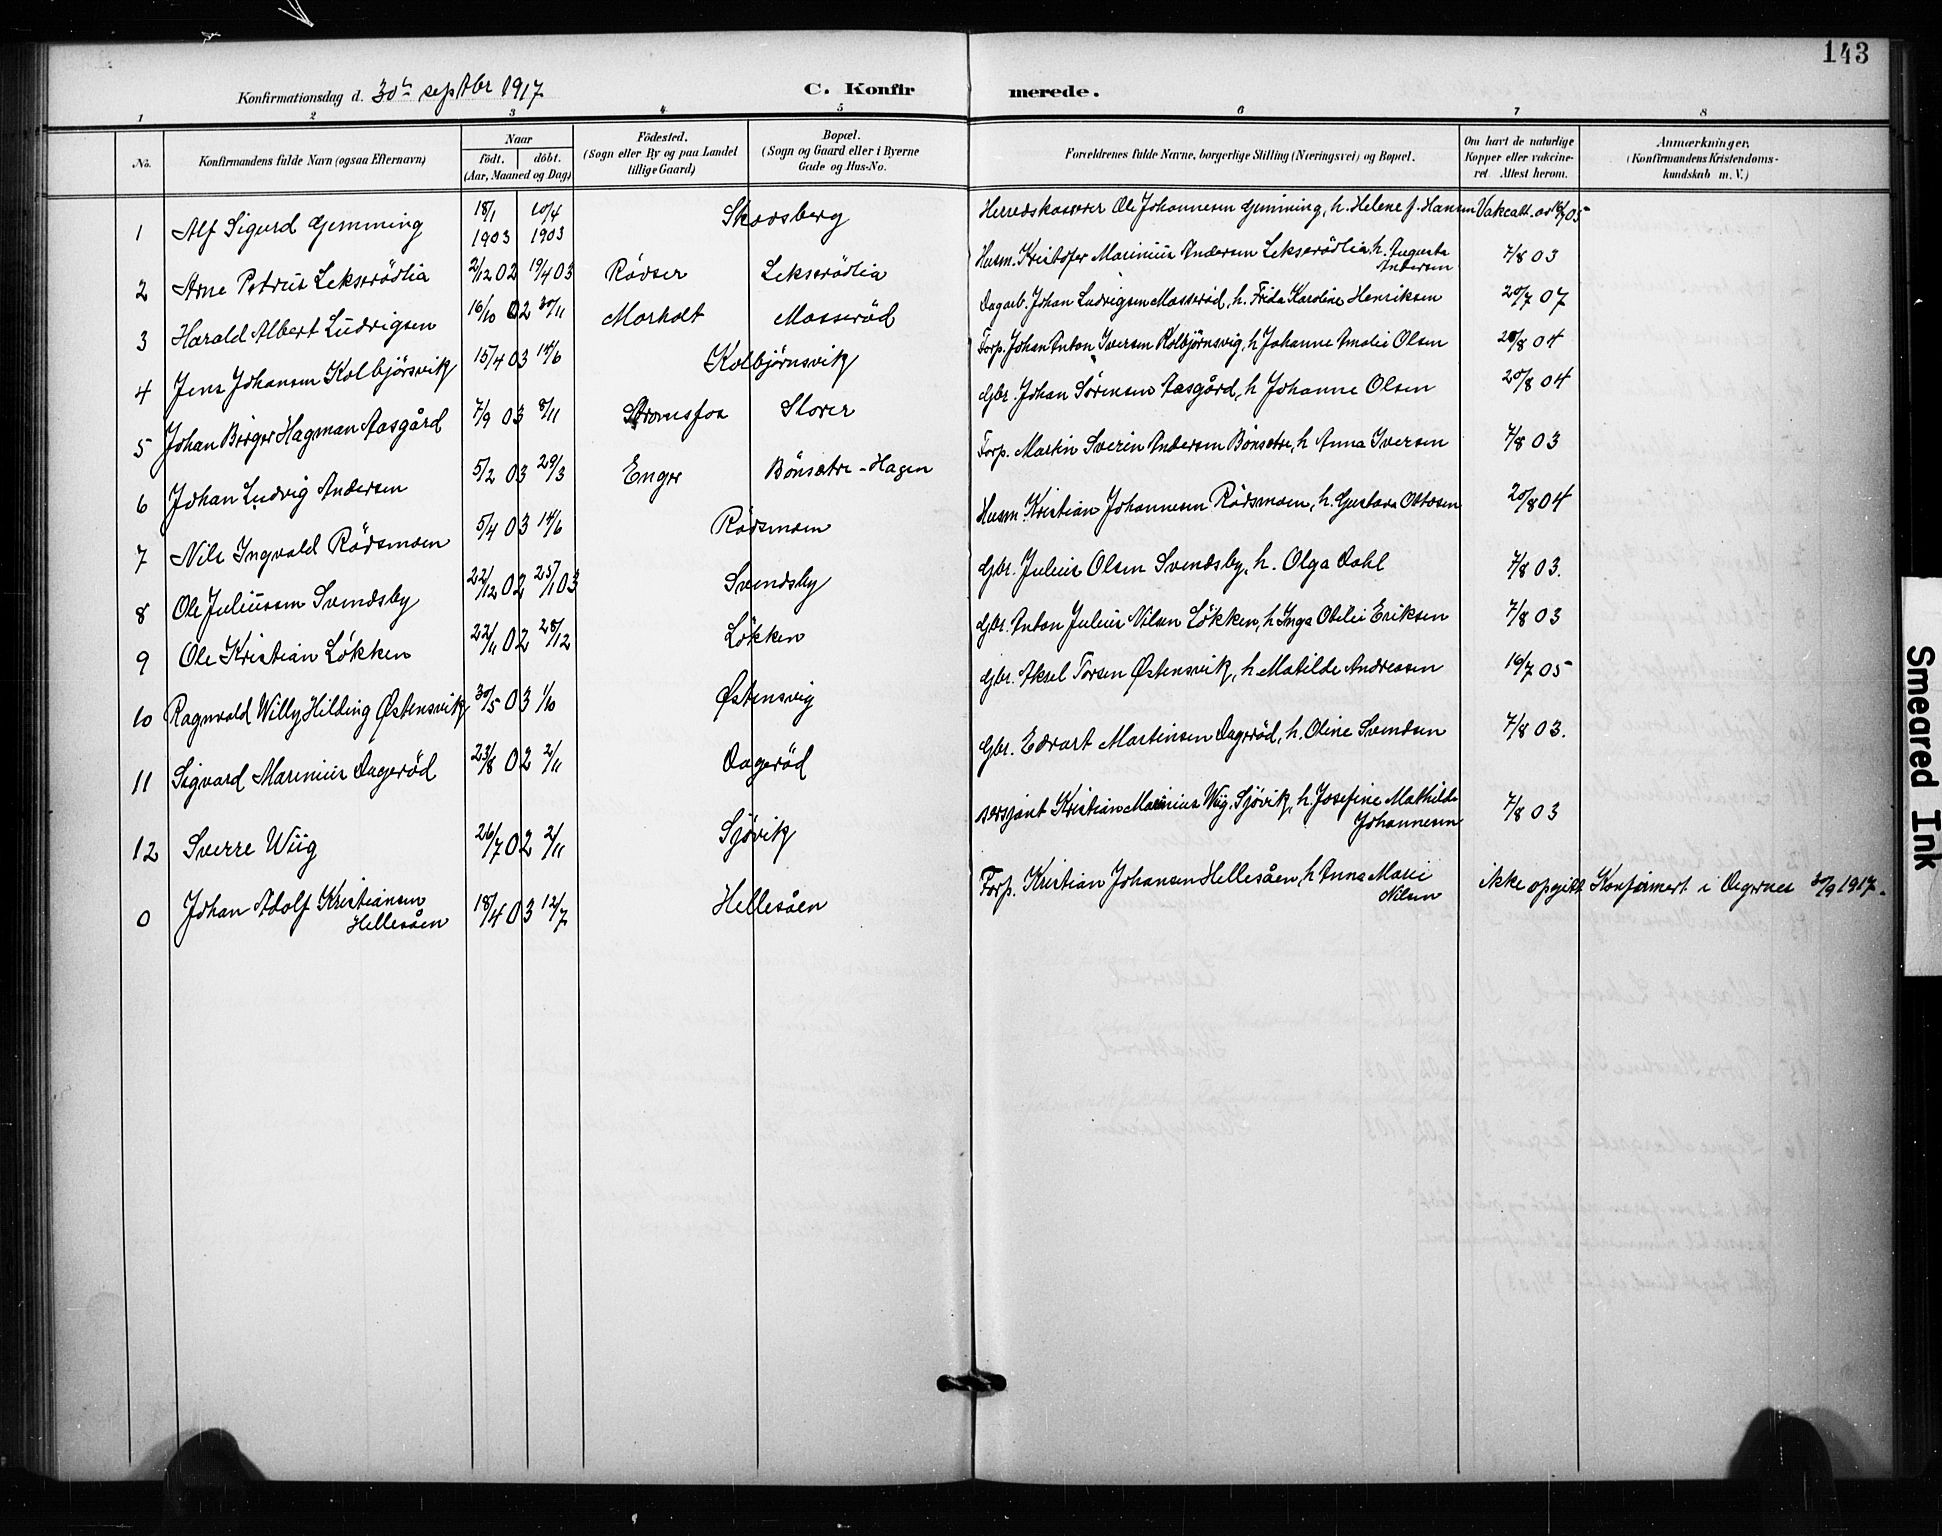 143
Konfirmationsdag d. 30te septbr 1917
C. Konfirmerede.
1 2 3 4 5 6 7 8
No. Konfirmandens fulde Navn (ogsaa Efternavn) Naar født. døbt. (Aar, Maaned og Dag) Födested. (Sogn eller By og paa Landet tillige Gaard) Bopæl. (Sogn og Gaard eller i Byerne Gade og Hus-No. Forældrenes fulde Navne, borgerlige Stilling (Næringsvei) og Bopæl. Om havt de naturlige Kopper eller vakcineret. Attest herom. Anmærkninger, (Konfirmandens Kristendomskundskab m. V.)
1 Alf Sigurd Gjemming 18/1 1903 10/4 1903 Skovsberg Herredskasserer Ole Johannesen Gjemming, h. Helene J. Hansen Vakcatt. av 16/7 05
2 Arne Petrus Lekserödlia 2/12 02 19/4 03 Rödser Lekserödlia Husm. Kristofer Marinius Andersen Lekserödlia h. Augusta Andersen 7/8 03
3 Harald Albert Ludvigsen 16/10 02 30/11 Morholt Mosseröd Dagarb. Johan Ludvigsen Mosseröd, h. Frida Karoline Henriksen 20/7 07
4 Jens Johansen Kolbjörsvik 15/4 03 14/6 Kolbjørnsvik Forp. Johan Anton Iversen Kolbjörnsvig, h Johanne Amalie Olsen 20/8 04
5 Johan Birger Hagman Aasgård 7/9 03 8/11 Strømsfos Storer Gbr. Johan Sörensen Aasgård, h Johanne Olsen 20/8 04
6 Johan Ludvig Andersen 5/2 03 29/3 Enger Bönsætre-Hagen Forp. Martin Severin Andersen Bönsætre, h Anna Iversen 7/8 03
7 Nils Ingvald Rödsmoen 5/4 03 14/6 Rödsmoen Husm. Kristian Johannesen Rödsmoen, h. Gustava Ottosen 20/8 04
8 Ole Juliussen Svendsby 22/12 02 25/1 03 Svendsby Gbr. Julius Olsen Svendsby, h. Olga Dahl 7/8 03.
9 Ole Kristian Løkken 22/11 02 28/12 Løkken Gbr. Anton Julius Nilsen Løkken, h Inga Otilie Eriksen 7/8 03
10 Ragnvald Willy Hilding Østensvik 30/5 03 1/10 Østensvig Gbr. Aksel Torsen Østensvik, h Matilde Andreasen 16/7 05
11 Sigvard Marinius Dageröd 23/8 02 2/11 Dageröd Gbr. Edvart Martinsen Dageröd, h. Oline Svendsen 7/8 03.
12 Sverre Wiig 26/7 02 2/11 Sjøvik sersjant Kristian Marinius Wiig. Sjövik, h. Josefine Mathilde Johannesen 7/8 03
0 Johan Adolf Kristiansen Hellesåen 18/4 03 12/7 Hellesåen Forp. Kristian Johansen Hellesåen, h Anna Marie Nilsen ikke opgitt Konfirmert i Degernes 30/9 1917.
Smeared Ink